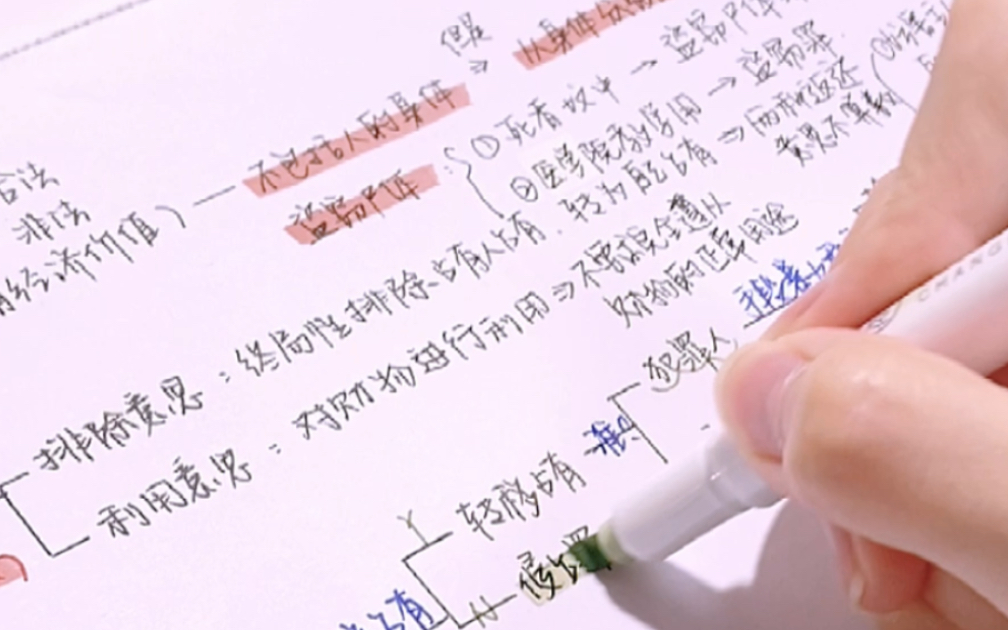 假牙
从身体分离
不包括人的身体
盗窃尸体
①死者故中 → 盗窃尸体
②医学院教学用 → 盗窃罪
合法
非法
经济价值）
排除意思：终局性排除占有人占有．转为自己占有 ⇒ 而若返还
意思不算数
利用意思：对财物进行利用 ⇒ 不要求完全遵从
财物的正常用途
犯罪人
转移占有
Y
N
侵占罪
占有
CHANG